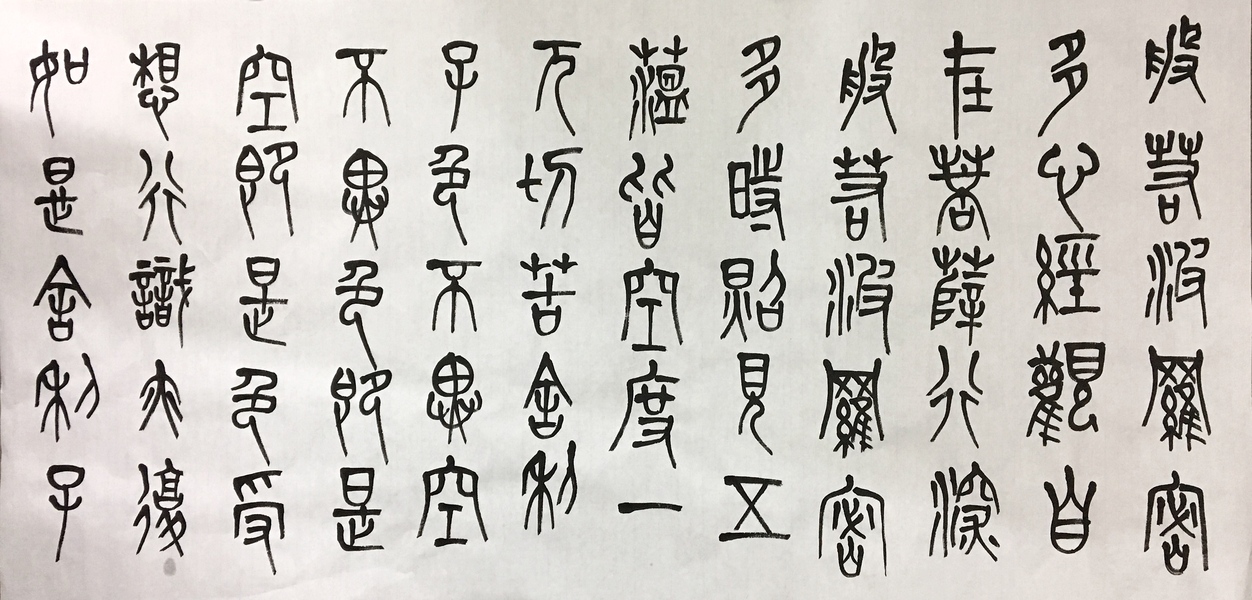 般若波羅密
多心經觀自
在菩薩行深
般若波羅密
多時照見五
薀皆空度一
万切苦舍利
子色不異空
不異色即是
空即是色受
想行識亦復
如是舍利子